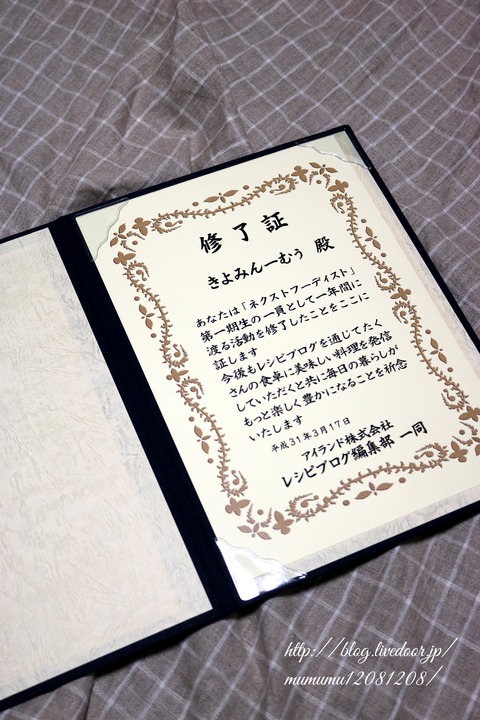 修了証
きよみんーむぅ 殿
あなたは「ネクストフーディスト」
第一期生の一員として一年間に
渡る活動を修了したことをここに
証します
今後もレシピブログを通じてたく
さんの食卓に美味しい料理を発信
していただくと共に毎日の暮らしが
もっと楽しく豊かになることを祈念
いたします
平成31年3月17日
アイランド株式会社
レシピブログ編集部 一同
http://blog.livedoor.jp/
mumumu12081208/